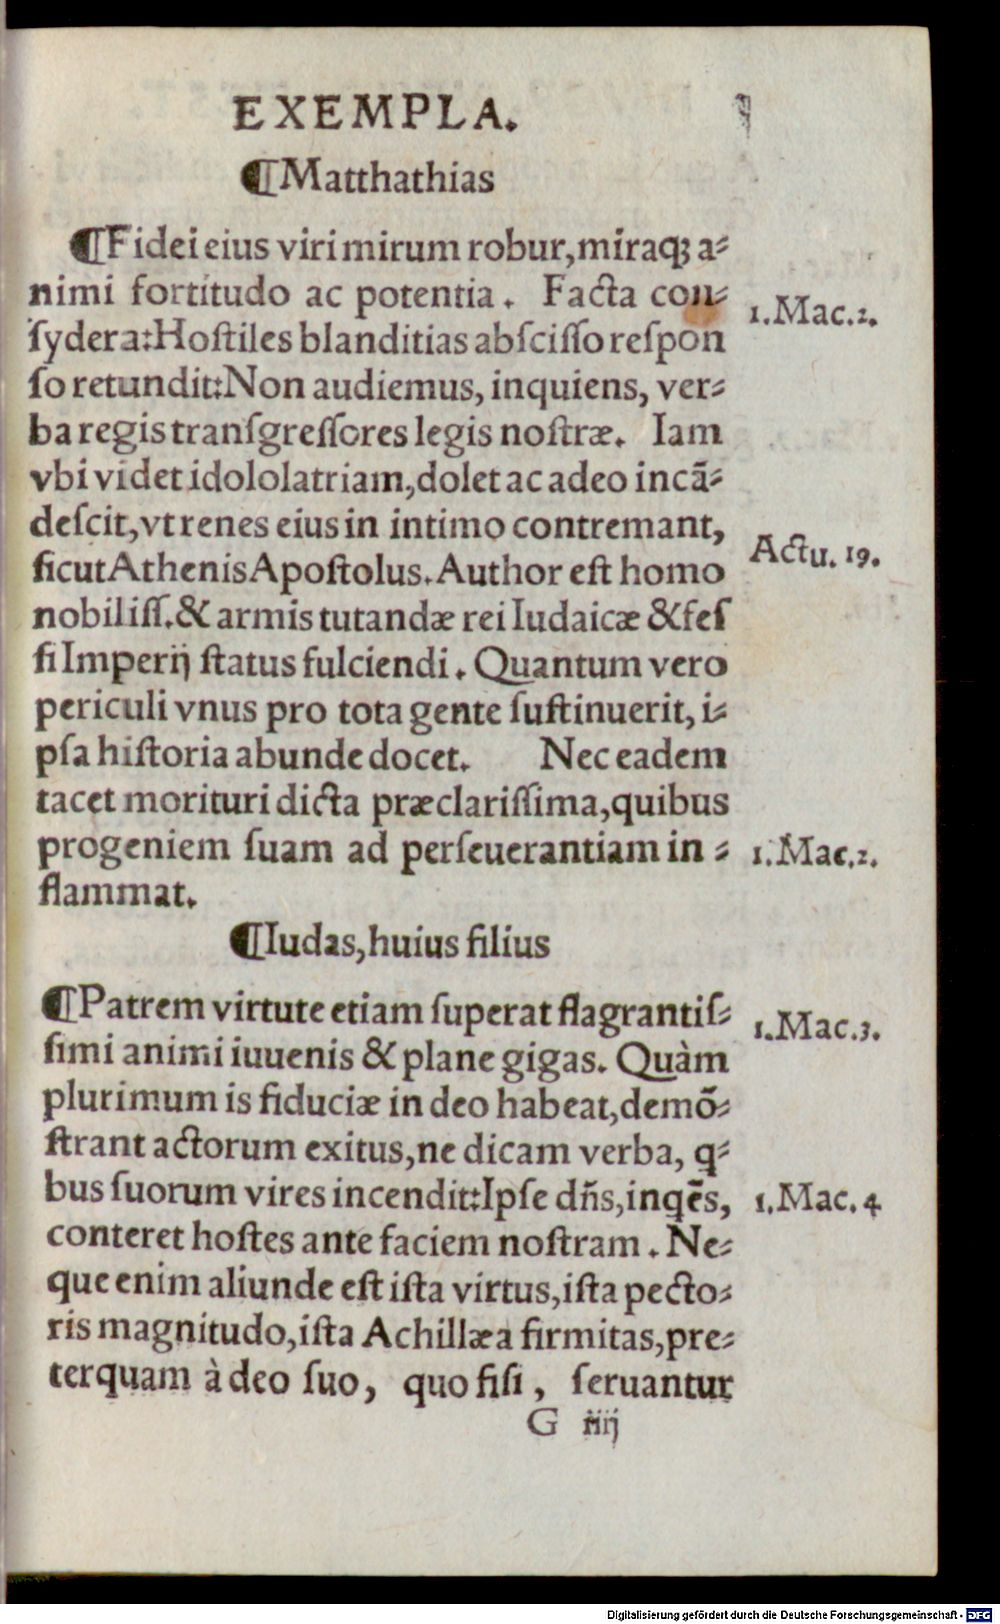 EXEMPLA.
¶Matthathias
¶Fidei eius viri mirum robur, miraqꝫ a⸗
nimi fortitudo ac potentia. Facta con⸗
ſydera: Hoſtiles blanditias abſciſſo reſpon
ſo retundit: Non audiemus, inquiens, ver⸗
ba regis tranſgreſſores legis noſtræ. Iam
vbi videt idololatriam, dolet ac adeo incã⸗
deſcit, vt renes eius in intimo contremant,
ſicut Athenis Apoſtolus. Author eſt homo
nobiliſſ. & armis tutandæ rei Iudaicæ & feſ
ſi Imperij ſtatus fulciendi. Quantum vero
periculi vnus pro tota gente ſuſtinuerit, i⸗
pſa hiſtoria abunde docet. Nec eadem
tacet morituri dicta præclariſſima, quibus
progeniem ſuam ad perſeuerantiam in⸗
flammat.
1.Mac.2.
Actu. 19.
1.Mac.2.
¶Iudas, huius filius
¶Patrem virtute etiam ſuperat flagrantiſ⸗
ſimi animi iuuenis & plane gigas. Quàm
plurimum is fiduciæ in deo habeat, demõ⸗
ſtrant actorum exitus, ne dicam verba, q⸗
bus ſuorum vires incendit: Ipſe dñs, inqẽs,
conteret hoſtes ante faciem noſtram. Ne⸗
que enim aliunde eſt iſta virtus, iſta pecto⸗
ris magnitudo, iſta Achillæa firmitas, pre⸗
terquam à deo ſuo, quo fiſi, ſeruantur
1.Mac.3.
1.Mac. 4
G iiij
Digitalisierung gefördert durch die Deutsche Forschungsgemeinschaft - DFG